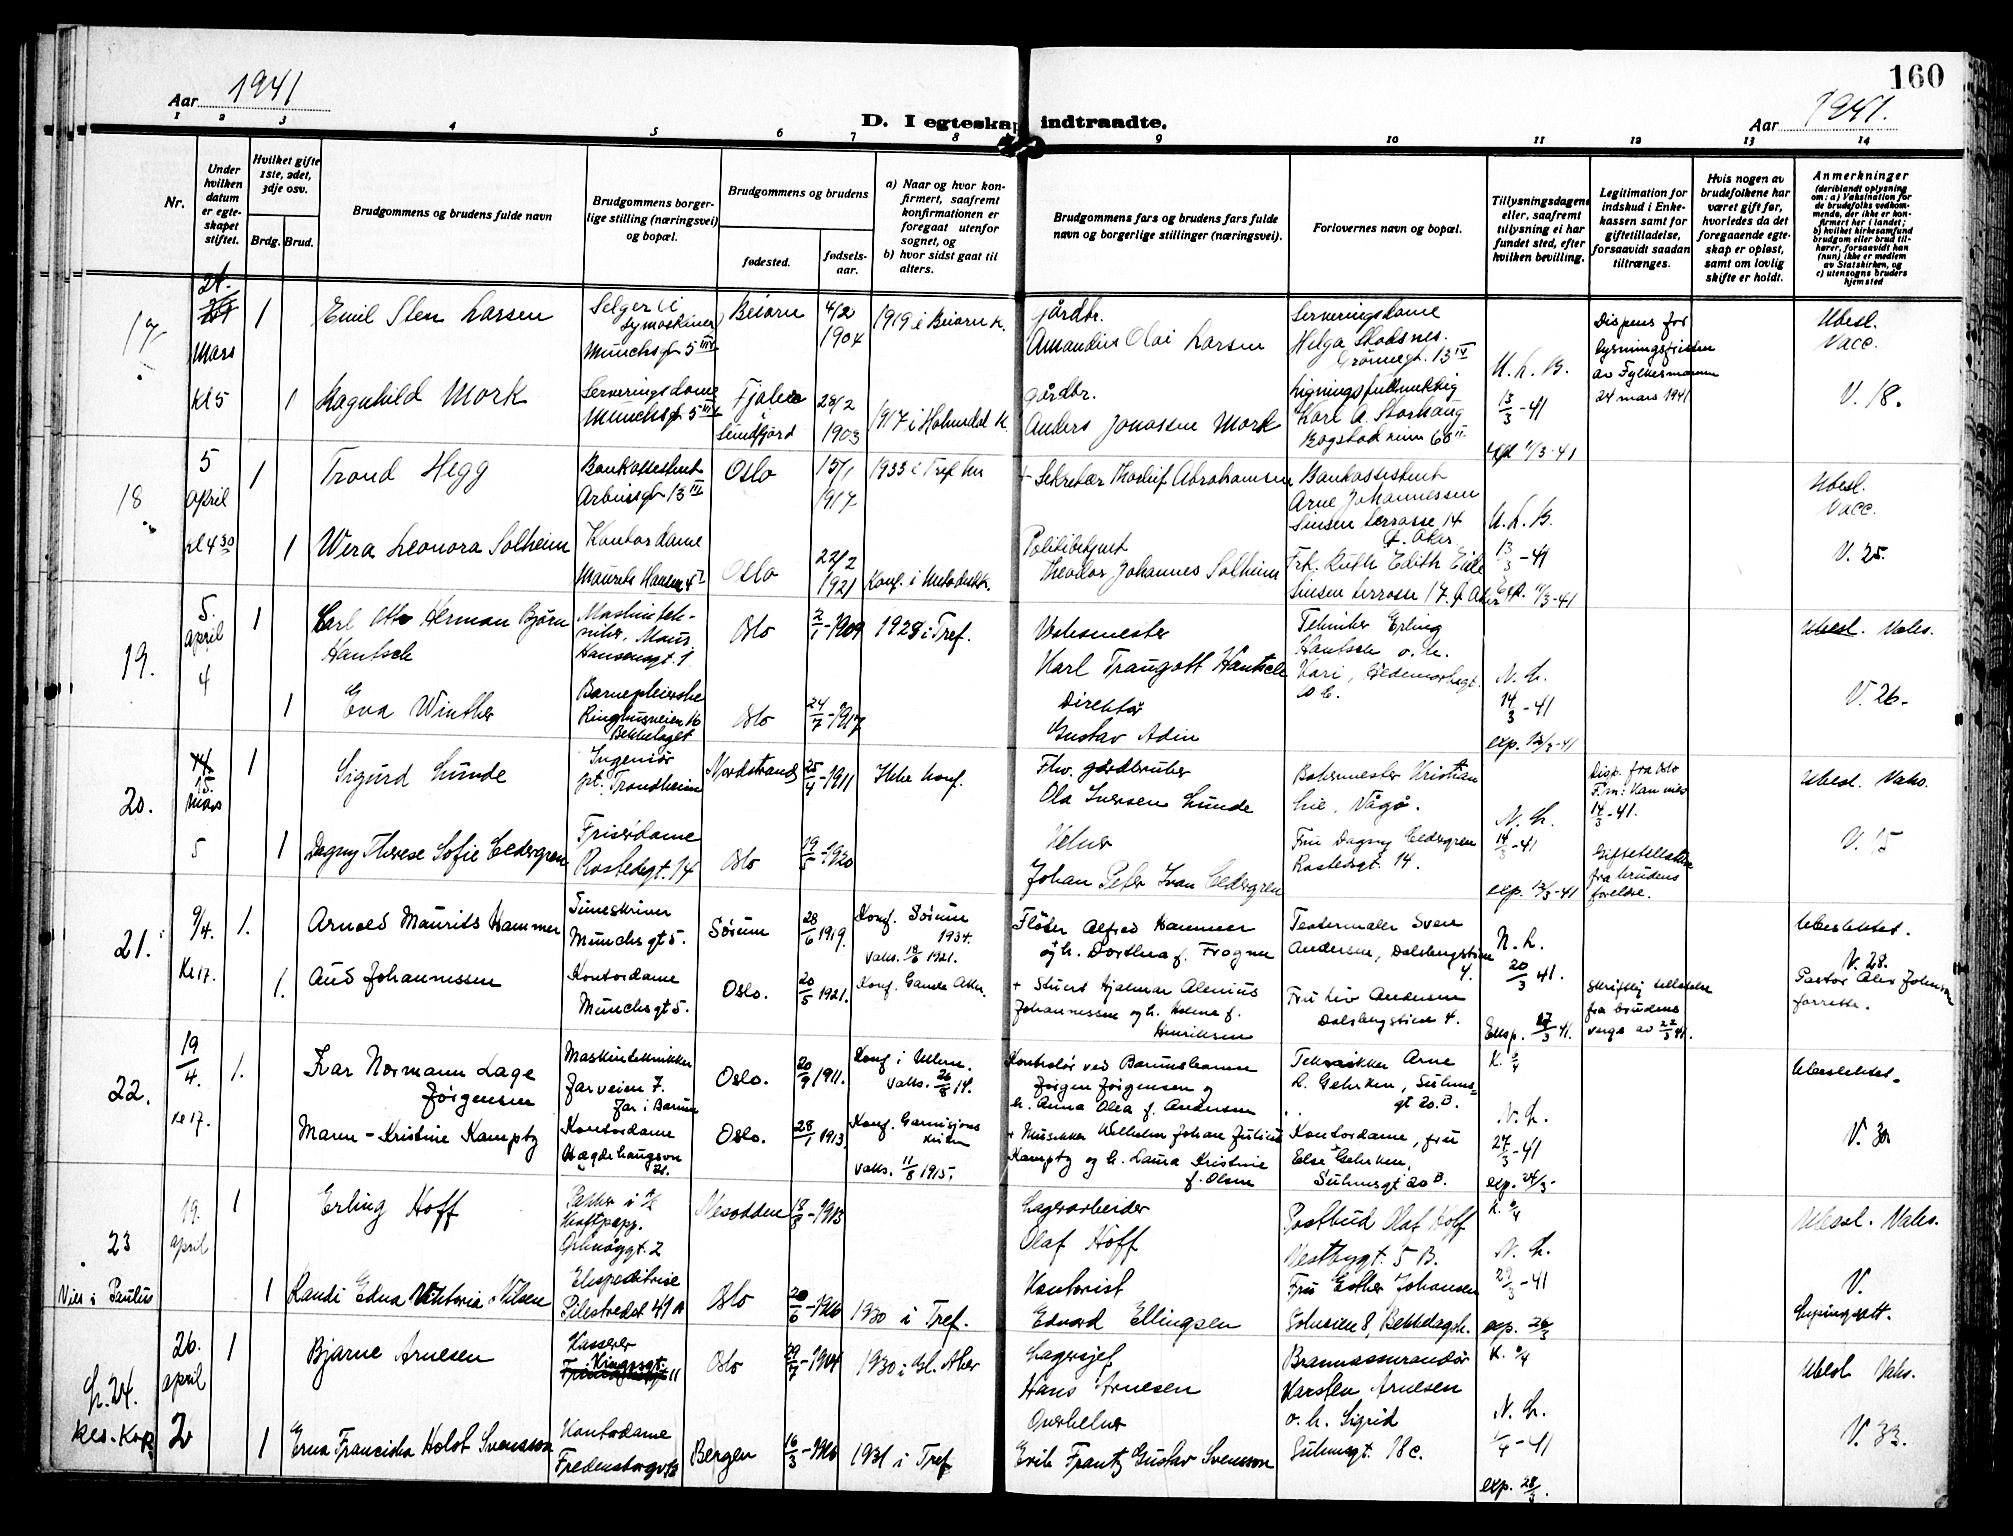 160
Aar 1941
D. I egteskap indtraadte.
Aar 1941.
1 2 3 4 5 6 7 8 9 10 11 12 13 14
Nr.
Under hvilken datum er egteskapet stiftet.
Hvilket gifte 1ste, 2det, 3dje osv.
Brdg. Brud.
Brudgommens og brudens fulde navn
Brudgommens borgerlige stilling (næringsvei) og bopæl.
Brudgommens og brudens
fødested.
fødselsaar.
a) Naar og hvor konfirmert, saafremt konfirmationen er foregaat utenfor sognet, og
b) hvor sidst gaat til alters.
Brudgommens fars og brudens fars fulde navn og borgerlige stillinger (næringsvei).
Forlovernes navn og bopæl.
Tillysningsdagene eller, saafremt tillysning ei har fundet sted, efter hvilken bevilling.
Legitimation for indskud i Enkekassen samt for giftetilladelse, forsaavidt saadan tiltrænges.
Hvis nogen av brudefolkene har været gift før, hvorledes da det foregaaende egteskap er opløst, samt om lovlig skifte er holdt.
Anmerkninger
(deriblandt oplysning om: a) Vaksination for de brudefolks vedkommende, der ikke er konfirmert her i landet; b) hvilket kirkesamfund brudgom eller brud tilhører, forsaavidt han (hun) ikke er medlem av Statskirken, og c) utensogns bruders hjemsted
17
Mars
kl 5
1
Emil Sten Larsen
Selger i
symaskiner
Munchsgt 5 III
Beiarn
4/2
1904
1919 i Beiarn k.
gårdbr.
Amandus Olai Larsen
Serveringsdame
Helga Stoksnes.
Grønnegt. 13 IV
U. L. B.
13/3 - 41
Dispens for
lysningsfristen
av Fylkesmannen
24 mars 1941
Ubesl.
Vacc.
V. 18.
1
Ragnhild Mork
Serveringsdame
Munchsgt 5 III
Fjaler
i
Sundfjord
28/2
1903
1917 i Holmedal k.
gårdbr.
Anders Jonassen Mork
Ligningsfullmektig
Karl A. Storhaug
18
5
April
kl 4 30
1
Trond Hegg
Bankassistent
Arbiensgt 13 III
Oslo
15/1
1917
1933 i Tref.
+ Sekretær Thorleif Abrahamsen
Bankassistent
Arne Johannessen
Sinsen terrasse 14
Ø. Aker
U. L. B.
13/3 - 41
Ubesl.
Vacc.
V. 25.
1
Wera Leonora Solheim
Kontordame
Oslo
22/2
1921
Konf. i Metodistk.
Politibetjent
Theodor Johannes Solheim
Frk. Ruth Edith Eide
Sinsen terrasse 17. Ø Aker
19.
5.
april
4
1
Carl Otto Herman Bjørn
Hantsch
Oslo
2/1 - 1909
1928 i Tref.
Karl Traugott Hantsch
Tekniker Erling
Hantsch o. h.
N. L.
14/3 - 41
Ubesl. Vaks.
V. 26.
1
Eva Winther
Barnepleierske
Ringhusveien 16
Bekkelaget
Oslo
24/7 - 1917
Direktør
Gustav Adin
exp. 12/3 - 41
20.
15.
Mars
5
1
Sigurd Lunde
Ingeniør
pt. Trondheim
Nordstrand
25/4 - 1911
Ikke konf.
Fhv. gårdbruker
Ola Iversen Lunde
Bakermester Kristian
Lie, Vågå.
N. L.
14/3 - 41
14/3 - 41.
Ubesl. Vaks.
V. 15
1
Dagny Therese Sofie Cedergren
Frisørdame
Rostedsgt. 14
Oslo
1920
Johan Peter Ivan Cedergren
Fru Dagny Cedergren
Rostedsgt. 14.
exp. 12/3 - 41
Giftetillatelse
fra brudens
forelde.
21.
9/4.
Kl 17.
1.
Arnold Maurits Hammer
Munchsgt 5.
Sørum
28/6 1919.
Konf. Sørum
1934.
Fløter Alfred Hammer
og h. Dorthea f. Frogner
Teatermaler Sven
Andersen, Dalsbergstien
4.
N. L.
20/3 41.
Ubeslektet.
V. 28.
1.
Aud Johannessen
Kontordame
Munchsgt 5.
Oslo.
20/5 1921.
Konf. Gamle Aker.
+ Stuert Hjalmar Alenius
Johannessen og h. Helene f.
Henriksen
Fru Liv Andersen
Dalsbergstien 4.
Eksp. 17/3 41.
Skriftlig tillatelse
fra brudens
verge av 22/3 41.
22.
19/4.
Kl 17.
1.
Ivar Normann Lage
Jørgensen
Maskintekniker
Jarveien 7.
Jar i Bærum
Oslo.
20/9 1911.
Konf. i Ullern.
Jørgen Jørgensen og
h. Anna Olea f. Andersen
Tekniker Arne
L. Gehrken, Suhms-
gt 20. B.
N. L.
27/3 - 41
Ubeslektet.
V. 30
Mann-Kristine Kamptz
Kontordame
Oslo.
28/1 1913.
Konf. Garnisjons
kirken
Vaks. 11/8 1915.
+ Musiker Wilhelm Johan Julius
Kamptz og h. Laura Kristine
f. Olsen
Kontordame, fru
Else Gehrken,
Suhmsgt 20 B.
exp. 24/3 -
23
Viet i Paulus
19.
april
1
Erling Hoff
Nesodden
1913
Lagerarbeider
Olaf Hoff
Postbud Olaf Hoff
Vestbygt. 5 B.
N. L.
29/3 - 41
Ubesl. Vaks.
V.
1
Randi Edna Viktoria Nilsen
Ekspeditrise
Pilestredet 41 A
Oslo
20/6 - 1916
1930 i Tref.
Kontorist
Edvard Ellingsen
Fru Esther Johansen
Solveien 8, Bekkelagsh.
exp. 26/3
L. 24.
26.
april
2
1
Bjarne Arnesen
Kasserer
Oslo
29/7 - 1914
1930 i Gl. Aker
Lagersjef
Hans Arnesen
Brannassurandør
Karsten Arnesen
o. h. Sigrid
Suhmsgt. 18 c.
N. L.
1/4 - 41
Ubesl Vaks.
V. 33.
1
Erna Franciska Holst Svensson
Kontordame
Bergen
16/3 - 1916
1931 i Tref
Overkelner
Erik Frantz Gustav Svensson
exp. 28/3.